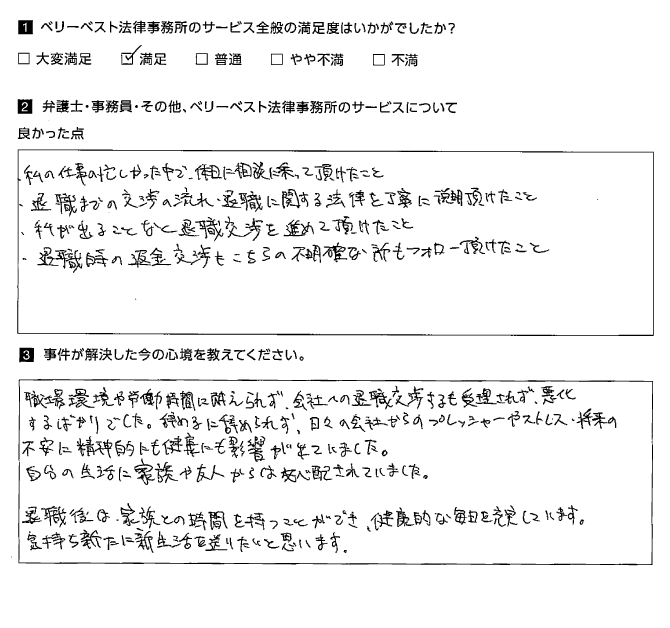 1 ベリーベスト法律事務所のサービス全般の満足度はいかがでしたか？
□ 大変満足 ☑ 満足 □ 普通 □ やや不満 □ 不満
2 弁護士・事務員・その他、ベリーベスト法律事務所のサービスについて
良かった点
・私の仕事の忙しかった中で、休日に相談に乗って頂けたこと
・退職までの交渉の流れ・退職に関する法律を丁寧に説明頂けたこと
・私が出ることなく退職交渉を進めて頂けたこと
・退職時の返金交渉もこちらの不明確な所もフォロー頂けたこと
3 事件が解決した今の心境を教えてください。
職場環境や労働時間に耐えられず、会社への退職交渉するも受理されず、悪化
するばかりでした。辞めるに辞められず、日々の会社からのプレッシャーやストレス・将来の
不安に精神的にも健康にも影響が出ていました。
自分の生活に家族や友人からは心配されていました。
退職後は、家族との時間を持つことができ、健康的な毎日を充実しています。
気持ち新たに新生活を送りたいと思います。